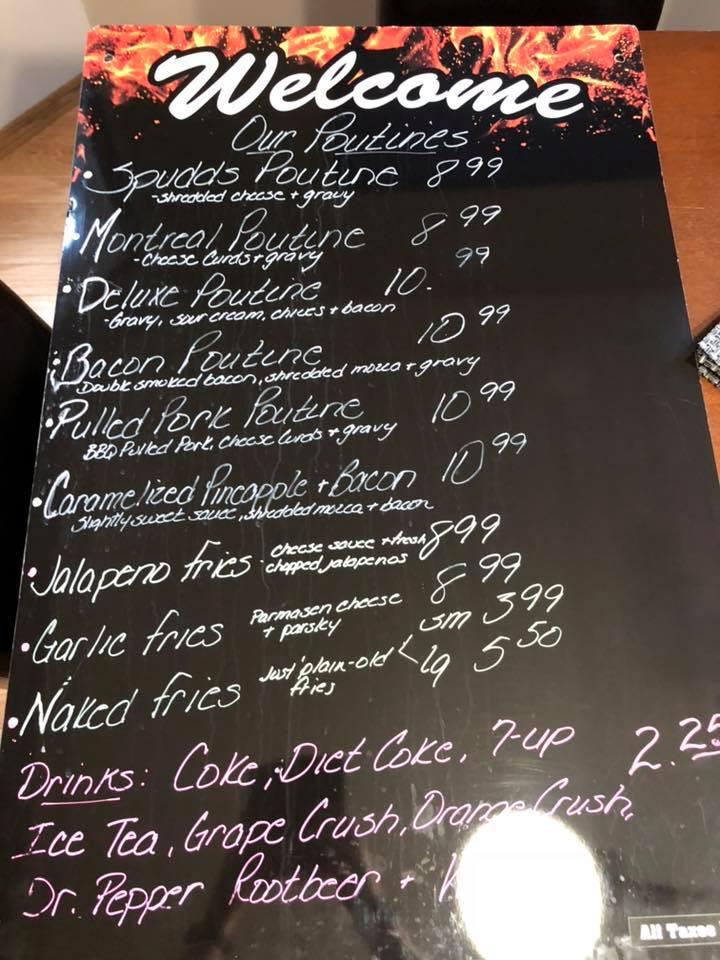 Welcome
Our Poutines
• Spudds Poutine 8 99
-shredded cheese + gravy
• Montreal Poutine 8 99
-cheese curds + gravy
• Deluxe Poutine 10. 99
-Gravy, sour cream, chives + bacon
• Bacon Poutine 10 99
Double smoked bacon, shredded mozza + gravy
• Pulled Pork Poutine 10 99
BBQ Pulled Pork, cheese curds + gravy
• Caramelized Pineapple + Bacon 10 99
Slightly sweet sauce, shredded mozza + bacon
• Jalapeno fries - cheese sauce + fresh 8 99
chopped jalapenos
• Garlic fries Parmasen cheese 8 99
+ parsley
• Naked fries Just plain-old < sm 3 99
fries lg 5 50
Drinks: Coke, Diet Coke, 7-up 2.25
Ice Tea, Grape Crush, Orange Crush,
Dr. Pepper Rootbeer +
All Taxes